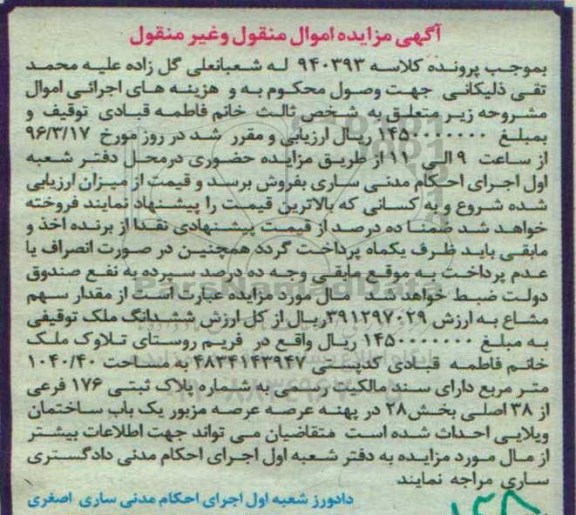 آگهی مزایده اموال منقول وغیر منقول
بموجب پرونده کلاسه ۹۴۰۳۹۳ له شعبانعلی گل زاده علیه محمد
تقی ذلیکانی جهت وصول محکوم به و هزینه های اجرائی اموال
مشروحه زیر متعلق به شخص ثالث خانم فاطمه قبادی توقیف و
بمبلغ ۱۴۵۰۰۰۰۰۰۰ ریال ارزیابی و مقرر شد در روز مورخ ۹۶/۳/۱۷
از ساعت ۹ الی ۱۱ از طریق مزایده حضوری درمحل دفتر شعبه
اول اجرای احکام مدنی ساری بفروش برسد و قیمت از میزان ارزیابی
شده شروع و به کسانی که بالاترین قیمت را پیشنهاد نمایند فروخته
خواهد شد ضمنا ده درصد از قیمت پیشنهادی نقدا از برنده اخذ و
مابقی باید ظرف یکماه پرداخت گردد همچنین در صورت انصراف یا
عدم پرداخت به موقع مابقی وجه ده درصد سپرده به نفع صندوق
دولت ضبط خواهد شد مال مورد مزایده عبارت است از مقدار سهم
مشاع به ارزش ۳۹۱۲۹۷۰۲۹ریال از کل ارزش ششدانگ ملک توقیفی
به مبلغ ۱۴۵۰۰۰۰۰۰۰ ریال واقع در فریم روستای تلاوک ملک
خانم فاطمه قبادی کدپستی ۴۸۳۴۱۴۳۹۴۷ به مساحت ۱۰۴۰/۴۰
متر مربع دارای سند مالکیت رسمی به شماره پلاک ثبتی ۱۷۶ فرعی
از ۳۸ اصلی بخش۲۸ در پهنه عرصه عرصه مزبور یک باب ساختمان
ویلایی احداث شده است متقاضیان می تواند جهت اطلاعات بیشتر
از مال مورد مزایده به دفتر شعبه اول اجرای احکام مدنی دادگستری
ساری مراجعه نمایند
دادورز شعبه اول اجرای احکام مدنی ساری اصغری
ParsNamadData